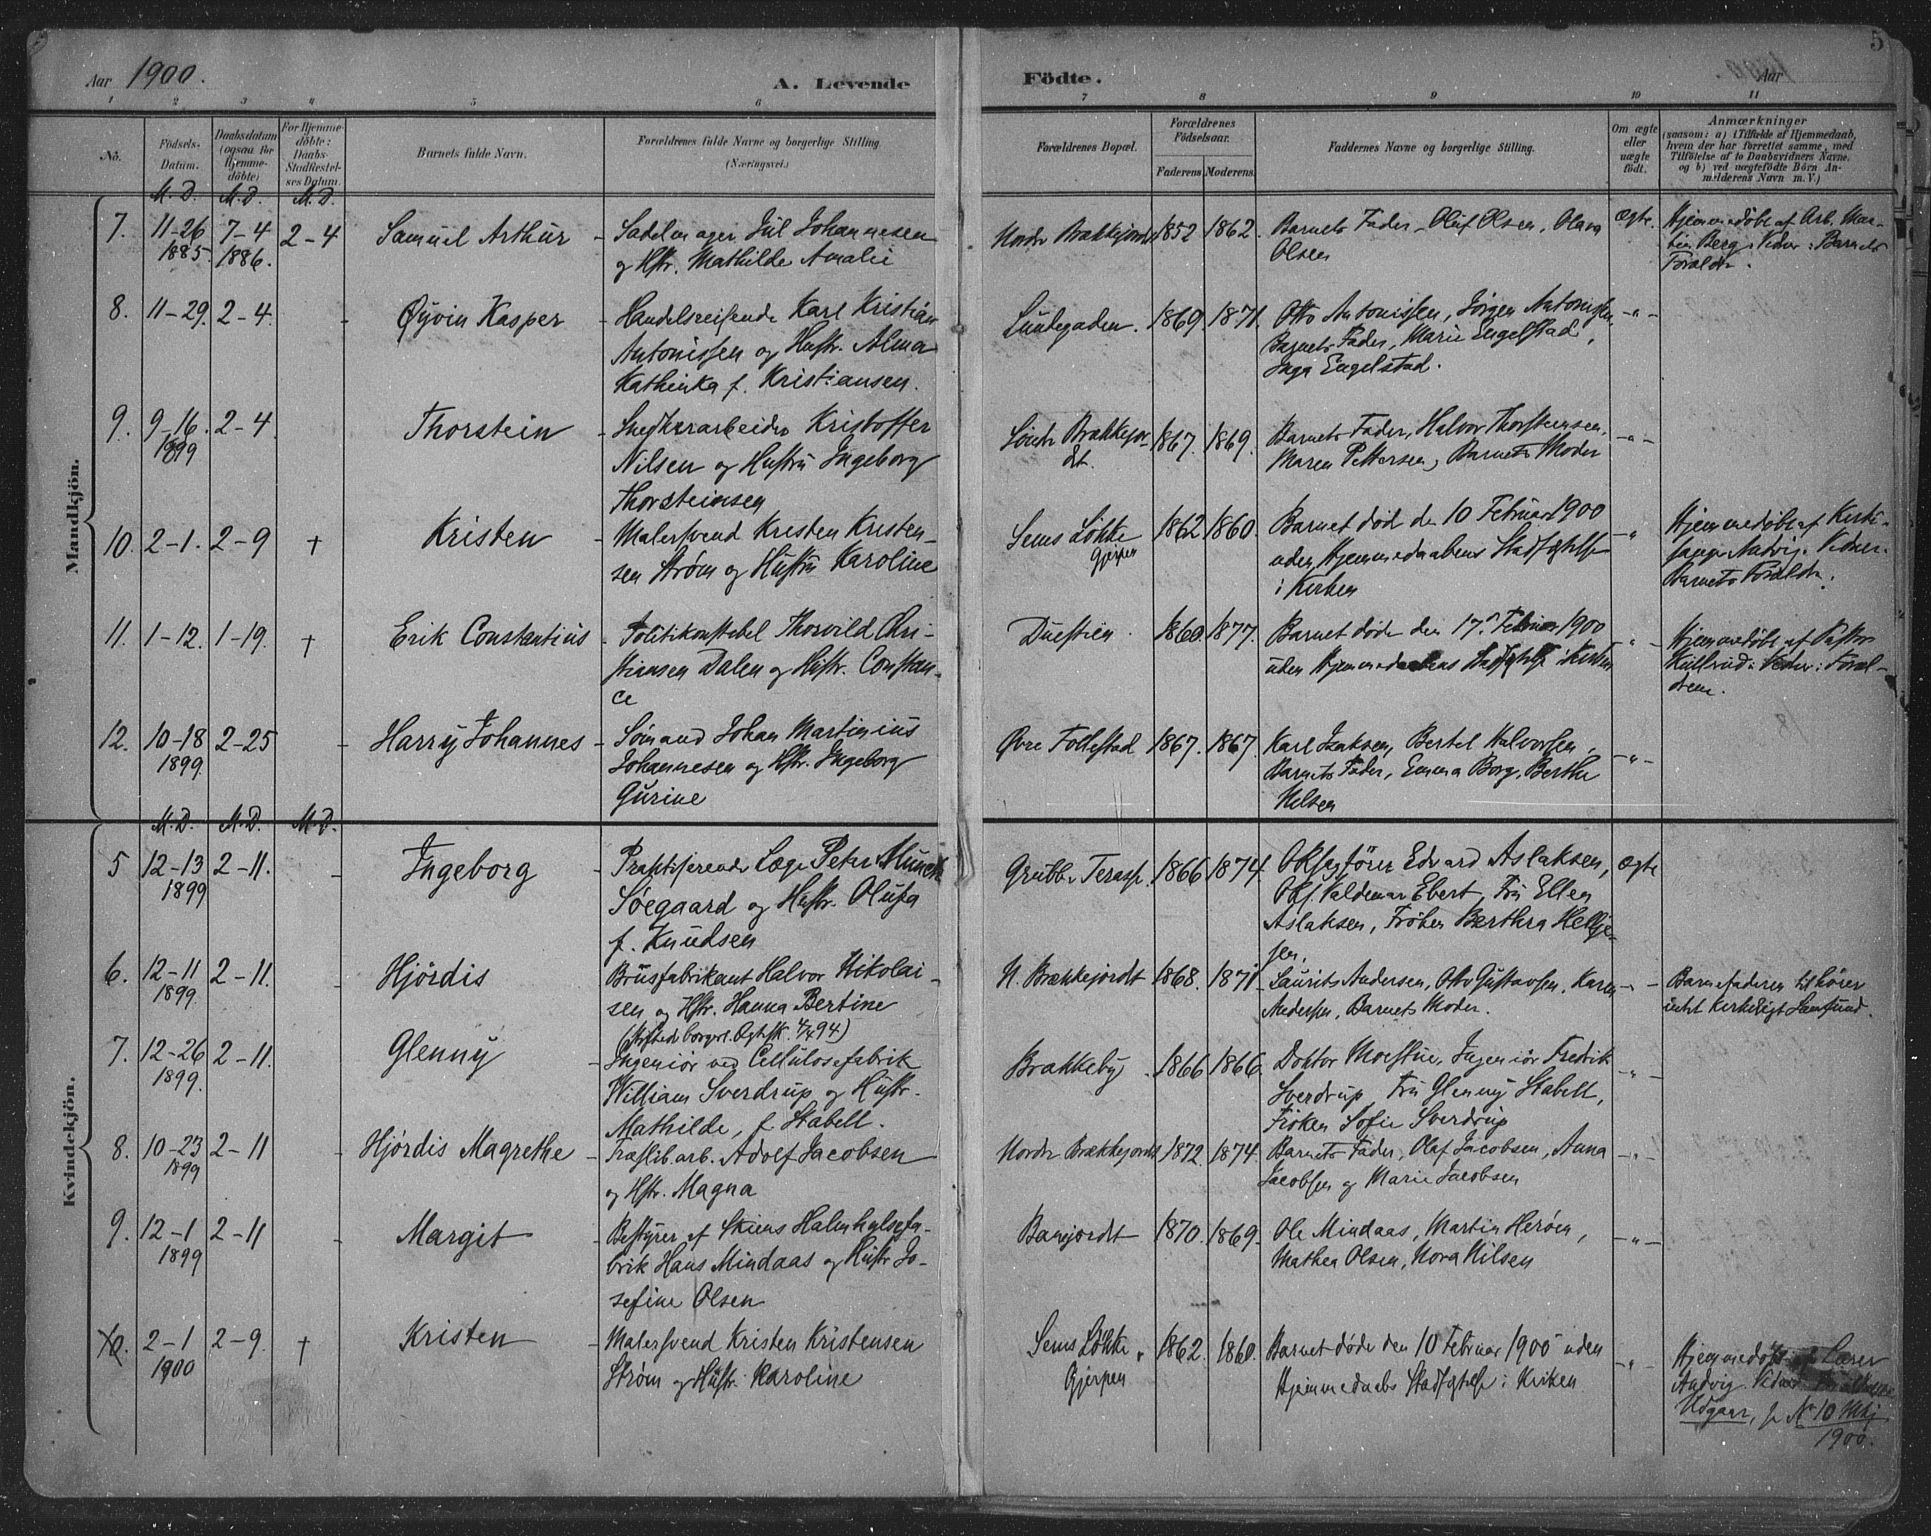 Aar 1900.
A. Levende Födte.
Aar
5
1 2 3 4 5 6 7 8 9 10 11
No.
Födsels-Datum.
Daabsdatum (ogsaa for Hjemme-döbte)
For Hjemme-döbte: Daabs-Stadfæstel-ses Datum.
Barnets fulde Navn.
Forældrenes fulde Navne og borgerlige Stilling. (Næringsvei.)
Forældrenes Bopæl.
Forældrenes Födselsaar.
Faderens Moderens.
Faddernes Navne og borgerlige Stilling.
Om ægte eller uægte födt.
Anmærkninger
(saasom: a) i Tilfælde af Hjemmedaab, hvem der har forrettet samme, med Tilföielse af to Daabsvidners Navne, og b) ved uægtefödte Börn An-melderens Navn m. V.)
Mandkjön.
M. D. M. D. M. D.
7. 11-26 1885. 7-4 1886. 2-4 Samuel Arthur - Sadelmager Jul Johannesen
og Hstr. Mathilde Amalie
Nordr Brækkejordt 1852 1862. Barnets Fader, Oluf Olsen, Olava
Olsen
ægte. Hjemmedøbt af Arb. Mar-
tin Berg. Vidner: Barnets
Foræld.
8. 11-29. 2-4. - Øyvin Kasper - Handelsreisende Karl Kristian
Antonissen og Hustr. Alma
Kathinka f. Kristiansen.
Lundegaden. 1869. 1871. Otto Antonissen, Jørgen Antonissen,
Barnets Fader, Marie Engelstad,
Inga Engelstad.
-"-
9. 9-16. 1899 2-4 Thorstein - Snedkerarbeider Kristoffer
Nilsen og Hustru Ingeborg
Thorsteinsen
Søndr Brækkejor-
dt. 1867. 1869. Barnets Fader, Halvor Thorsteinsen,
Maren Pettersen, Barnets Moder
-"-
10. 2-1. 2-9 + Kristen - Malersvend Kresten Kristen-
sen Strøm og Hustru Karoline
Sems Løkke
Gjerpen 1862 1860. Barnet død den 10 Februar 1900
uden Hjemmedaabens Stadfæstelse
i Kirken
" Hjemmedøbt af Kirke-
sanger Andvig. Vidner.
Barnets Foræld.
11. 1-12. 1-19. + Erik Constantius - Politikonstabel Thorvild Chri-
stensen Dalen og Hstr. Constan-
ce
Duestien. 1860. 1877. Barnet døde den 17. Februar 1900
uden Hjemmedaabens Stadfæstelse i Kirken
" Hjemmedøbt af Pastor
Kullerud. Vidner: Foræl-
drene.
12. 10-18 1899. 2-25 - Harry Johannes - Sømand Johan Martinius
Johannesen og Hstr. Ingeborg
Gurine
Øvre Follestad 1867. 1867. Karl Isaksen, Bertel Halvorsen,
Barnets Fader, Emma Borg, Berthe
Nilsen
-"-
Kvindekjön.
M. D. M. D. M. D.
5 12-13 1899 2-11. - Ingeborg - Praktiserende Læge Peter Munch
Søegaard og Hustr. Olufa
f. Knudsen
Grubbe Terasse. 1866 1874. Oksagfører Edvard Aslaksen,
Oks. Valdemar Ebert, Fru Ellen
Aslaksen, Frøken Berthra Helge-
sen.
ægte
6. 12-11 1899. 2-11. Hjørdis Brusfabrikant Halvor Nikolai-
sen og Hstr. Hanna Bertine
(Indsted borgerl. Ægtsk. 4/4 94)
N. Brækkejordt 1868. 1871. Laurits Andersen, Otto Gustavsen, Karen
Andersen, Barnets Moder.
-"- Barnefaderen tilhører
intet kirkeligt Samfund.
7. 12-26 1899. 2-11. Glenny - Ingeniør ved Cellulosefabrik
William Sverdrup og Hustr.
Mathilde, f Stabell.
Brækkeby 1866 1866. Doktor Moestue, Ingeniør Fredrik
Sverdrup, Fru Glenny Stabell,
Frøken Sofie Sverdrup
-"-
8. 10-23 1899 2-11 - Hjørdis Magrethe - Træslib arb. Adolf Jacobsen
og Hstr. Magna
Nordr Brækkejordt 1872. 1874. Barnets Fader, Olaf Jacobsen, Anna
Jacobsen og Marie Jacobsen
-"-
9. 12-1 1899 2-11 - Margit - Bestyrer af Skiens Halmhylsefa-
brik Hans Mindaas og Hustr Jo-
sefine Olsen
Banjordt 1870. 1869. Ole Mindaas, Martin Herøen,
Mathea Olsen, Nora Nilsen
-"-
10. 2-1 1900 2-9. + Kristen - Malersvend Kristen Kristensen
Strøm og Hustr. Karoline
Sems Løkke,
Gjerpen 1862. 1860. Barnet døde den 10 Februar 1900 uden
Hjemmedaabs Stadfæstelse i Kirken
-"- Hjemmedøbt af Lærer
Andvig. Vidner
Udgaar, jr No 10 Mkj
1900.